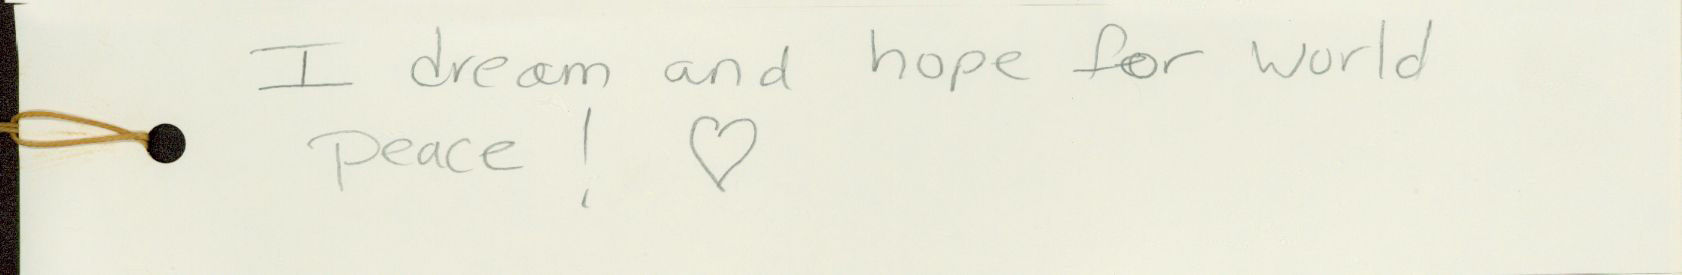 I dream and hope for world
peace! ♡